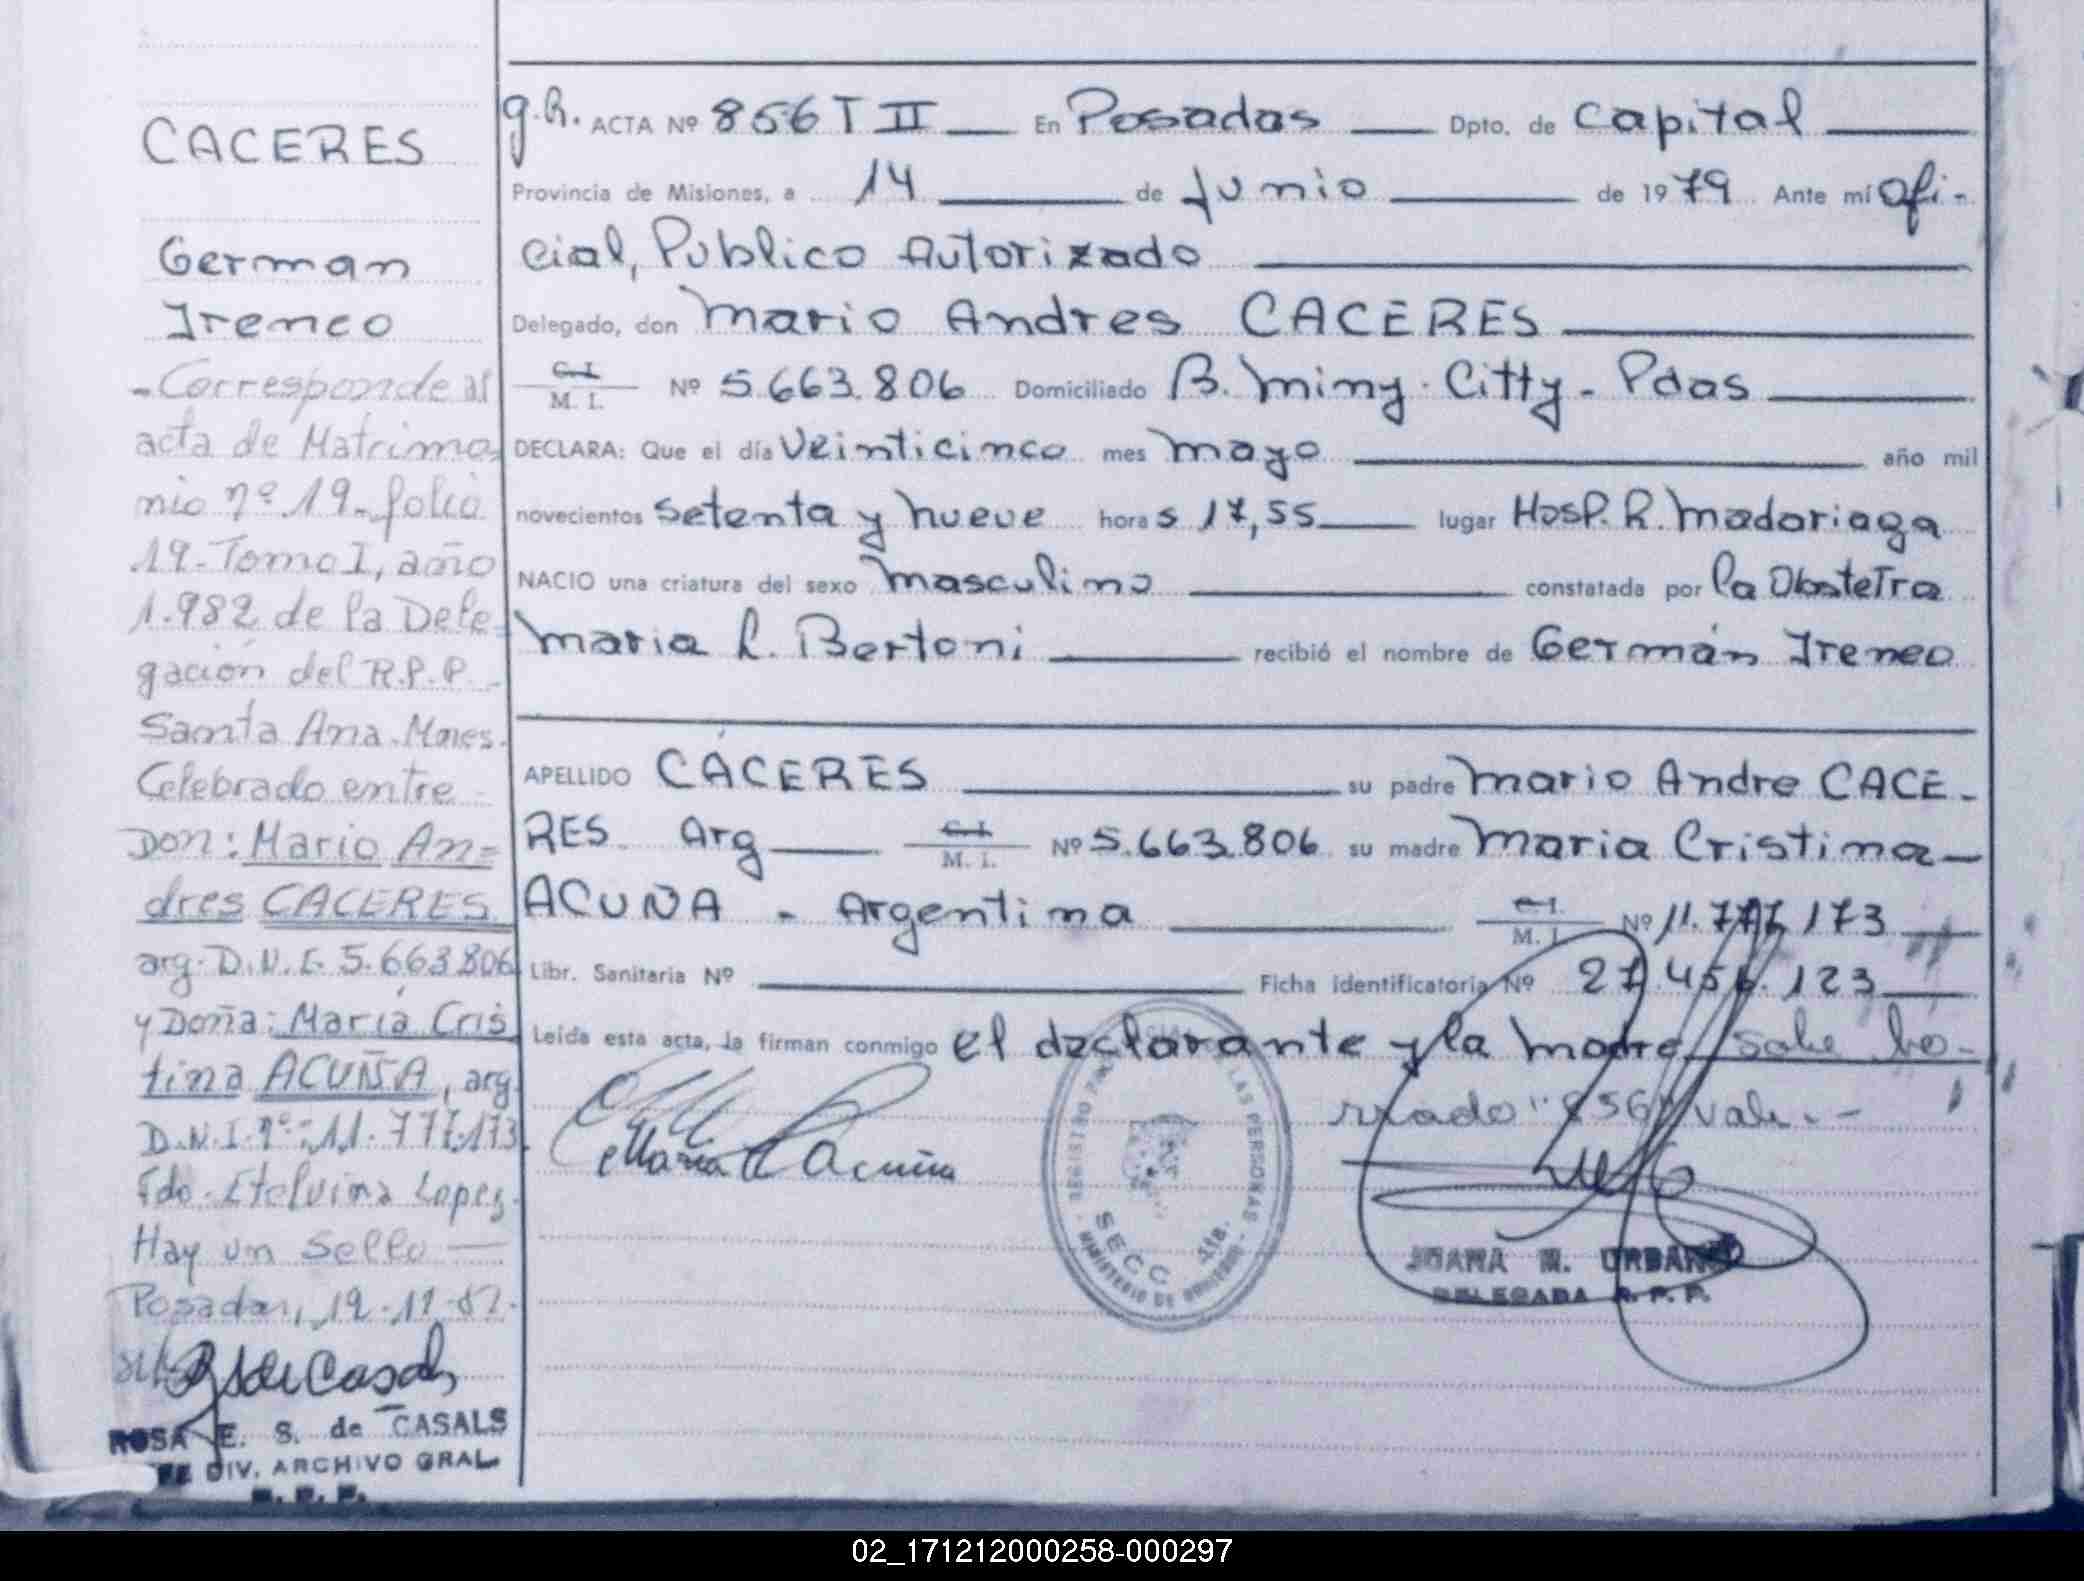 CACERES
German
Ireneo
- Corresponde al
acta de Matrimo
nio nº 19 - folio
19 - Tomo I, año
1.982 de la Dele
gación del R.P.P.
Santa Ana. Mnes.
Celebrado entre
Don: Mario An=
dres CACERES
arg. D.N.I. 5.663.806
y Doña: María Cris
tina ACUÑA, arg.
D.N.I. nº: 11.777.173
Fdo. Etelvina Lopez.
Hay un Sello —
Posadas, 19-11-82.
ROSA E. S. de CASALS
DIV. ARCHIVO GRAL.
R. P. P.
g.R. ACTA Nº 856 T II En Posadas Dpto. de Capital
Provincia de Misiones, a 14 de Junio de 1979 Ante mí Ofi-
cial, Publico Autorizado
Delegado, don Mario Andres CACERES
C.I.
M. I. Nº 5.663.806 Domiciliado B. Miny. Citty - Pdas
DECLARA: Que el día Veinticinco mes mayo año mil
novecientos setenta y nueve horas 17,55 lugar Hosp. R. Madariaga
NACIO una criatura del sexo masculino constatada por la Obstetra
Maria L. Bertoni recibió el nombre de Germán Ireneo
APELLIDO CACERES su padre Mario Andre CACE-
RES. Arg C.I.
M. I. Nº 5.663.806 su madre Maria Cristina
ACUÑA - Argentina C.I.
M. I. Nº 11.777.173
Libr. Sanitaria Nº Ficha identificatoria Nº 27.456.123
Leída esta acta, la firman conmigo el declarante y la madre sobre bo-
rrado "856" vale. -
Maria C Acuña
REGISTRO PROVINCIAL DE LAS PERSONAS
MINISTERIO DE GOBIERNO
SECC. 1ra.
JUANA M. URBAN
DELEGADA R. P. P.
02_171212000258-000297